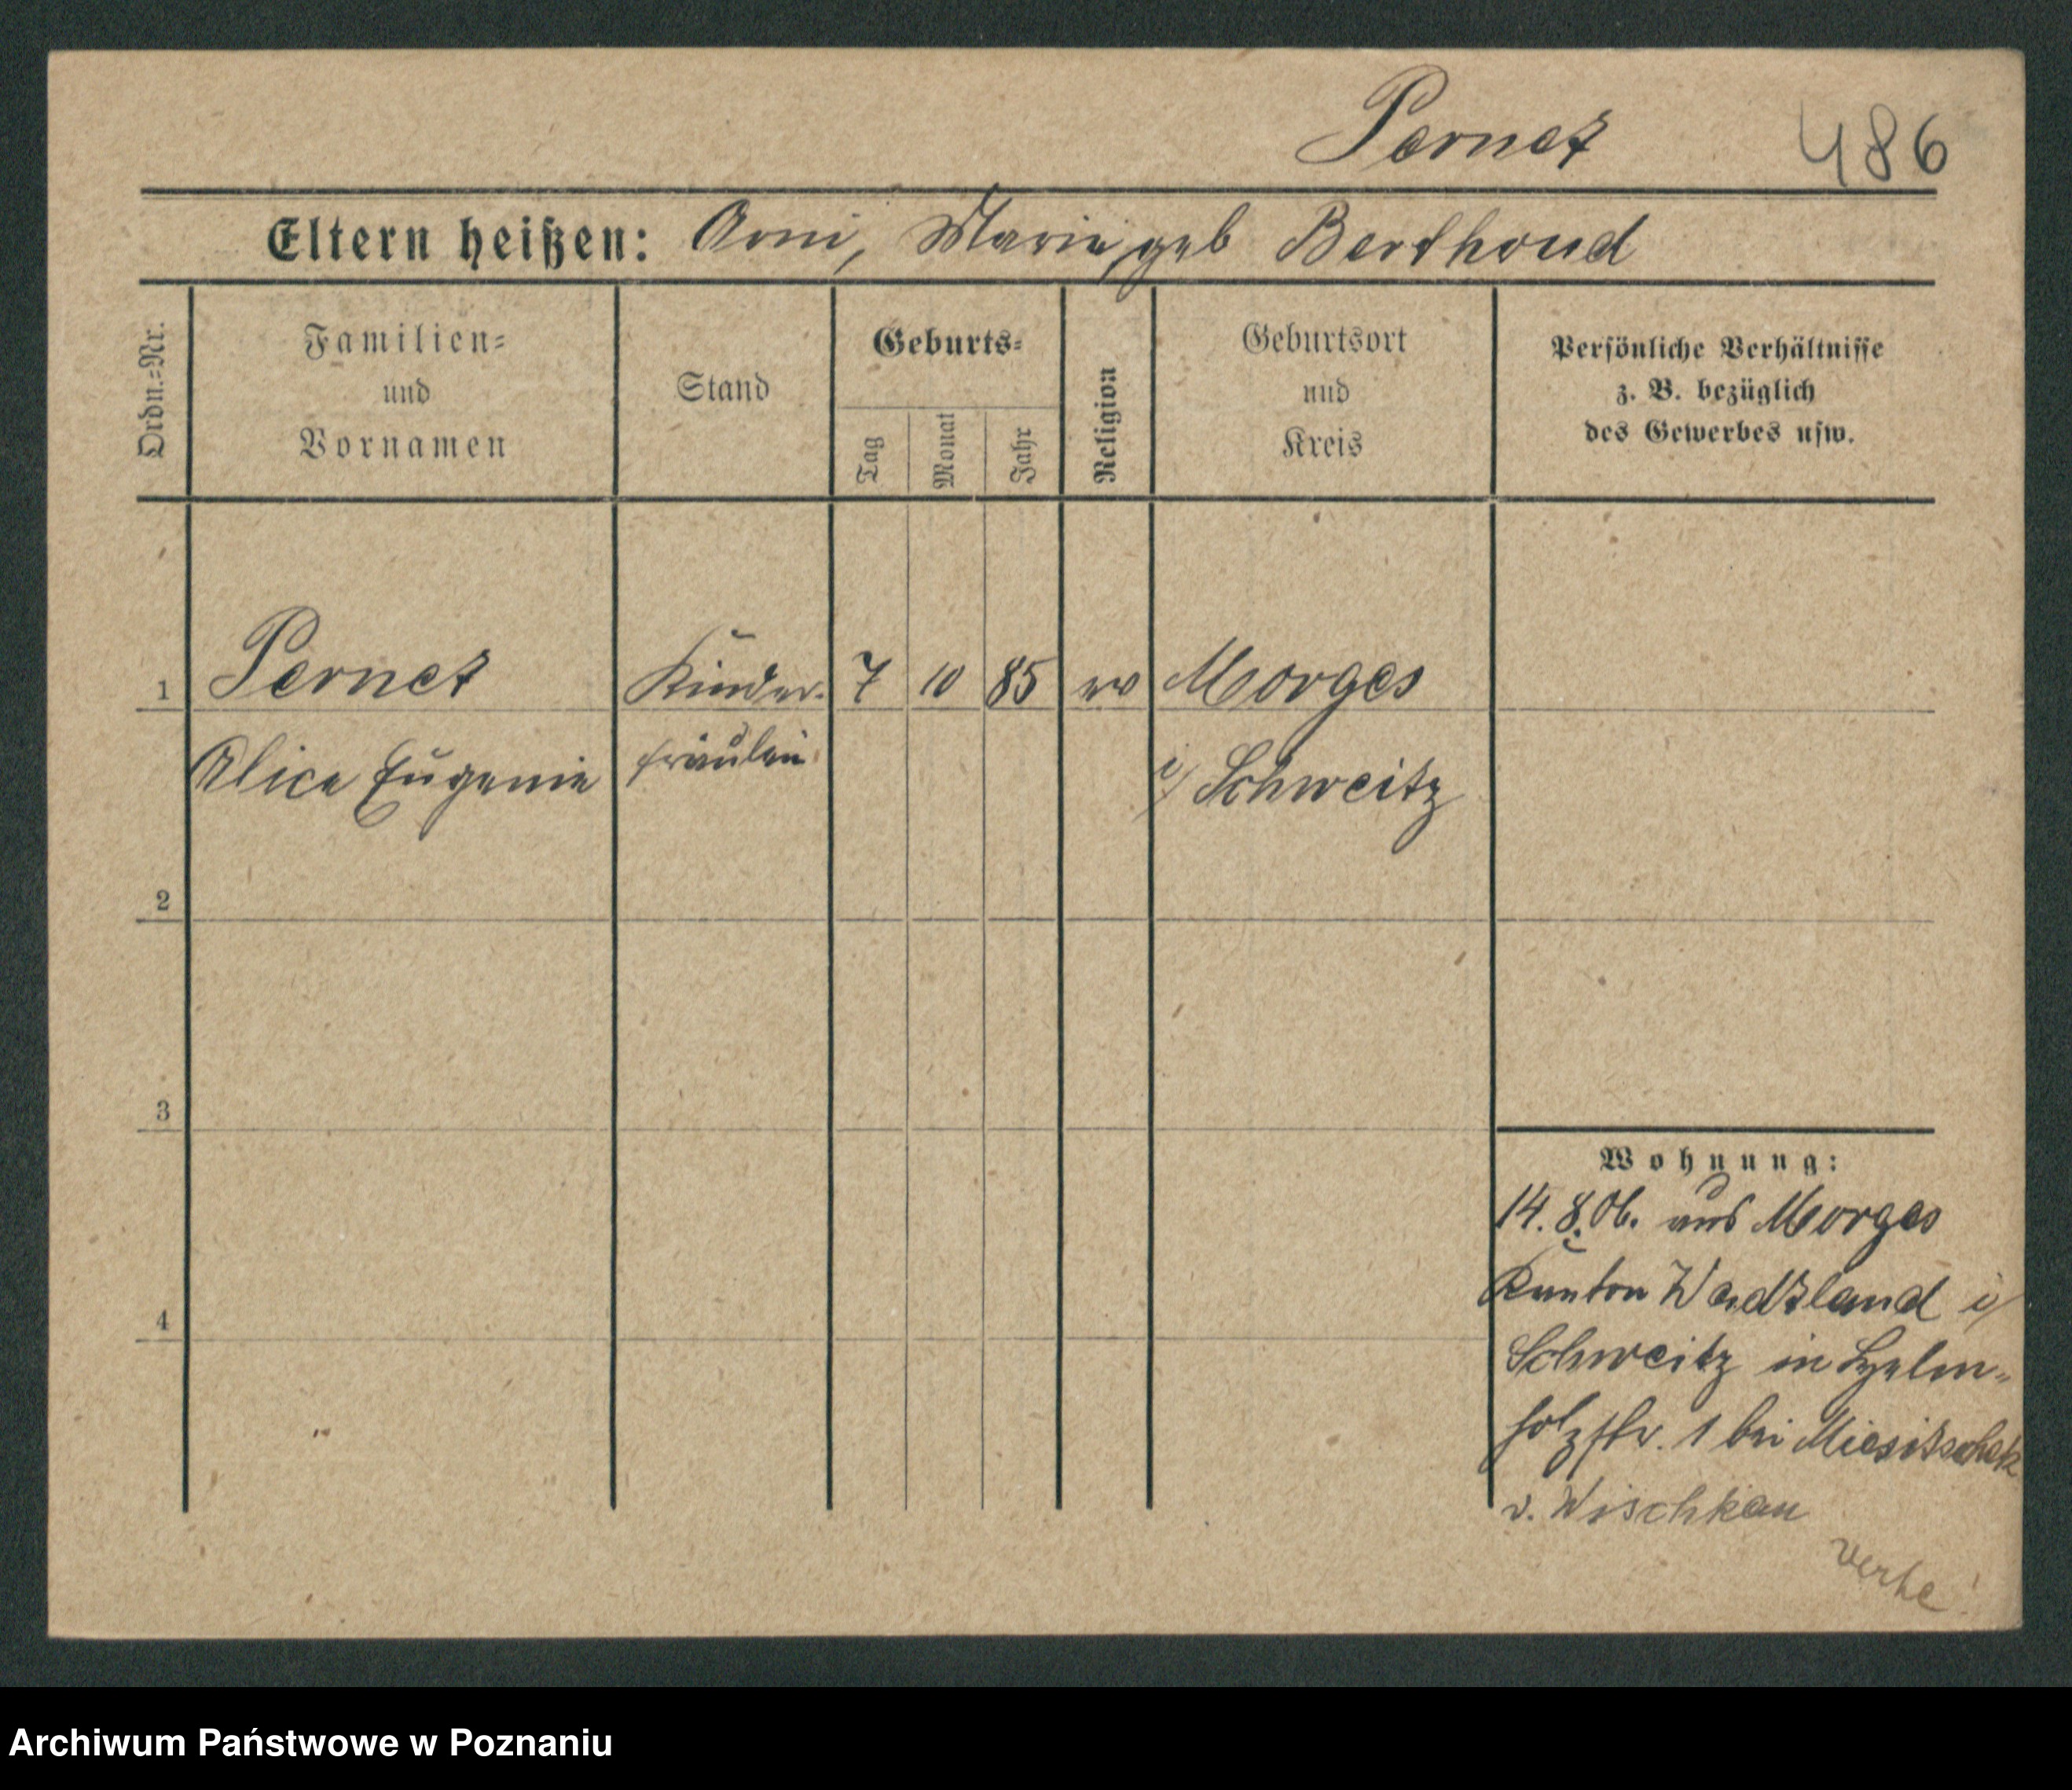 Pernet 486
Eltern heißen: Armi, Marie, geb Berthoud
Ordn.=Nr.
Familien=
und
Vornamen
Stand
Geburts=
Tag
Monat
Jahr
Religion
Geburtsort
und
Kreis
Persönliche Verhältnisse
z. B. bezüglich
des Gewerbes usw.
1 Pernet Kinder- 7 10 85 ev Morges
Alice Eugenie fräulein i/ Schweitz
2
3
4
Wohnung:
14.8.06. aus Morges
Kanton Wadtland i/
Schweitz in Helm-
holzstr. 1 bei Miesitschek
v. Wischkau
Archiwum Państwowe w Poznaniu